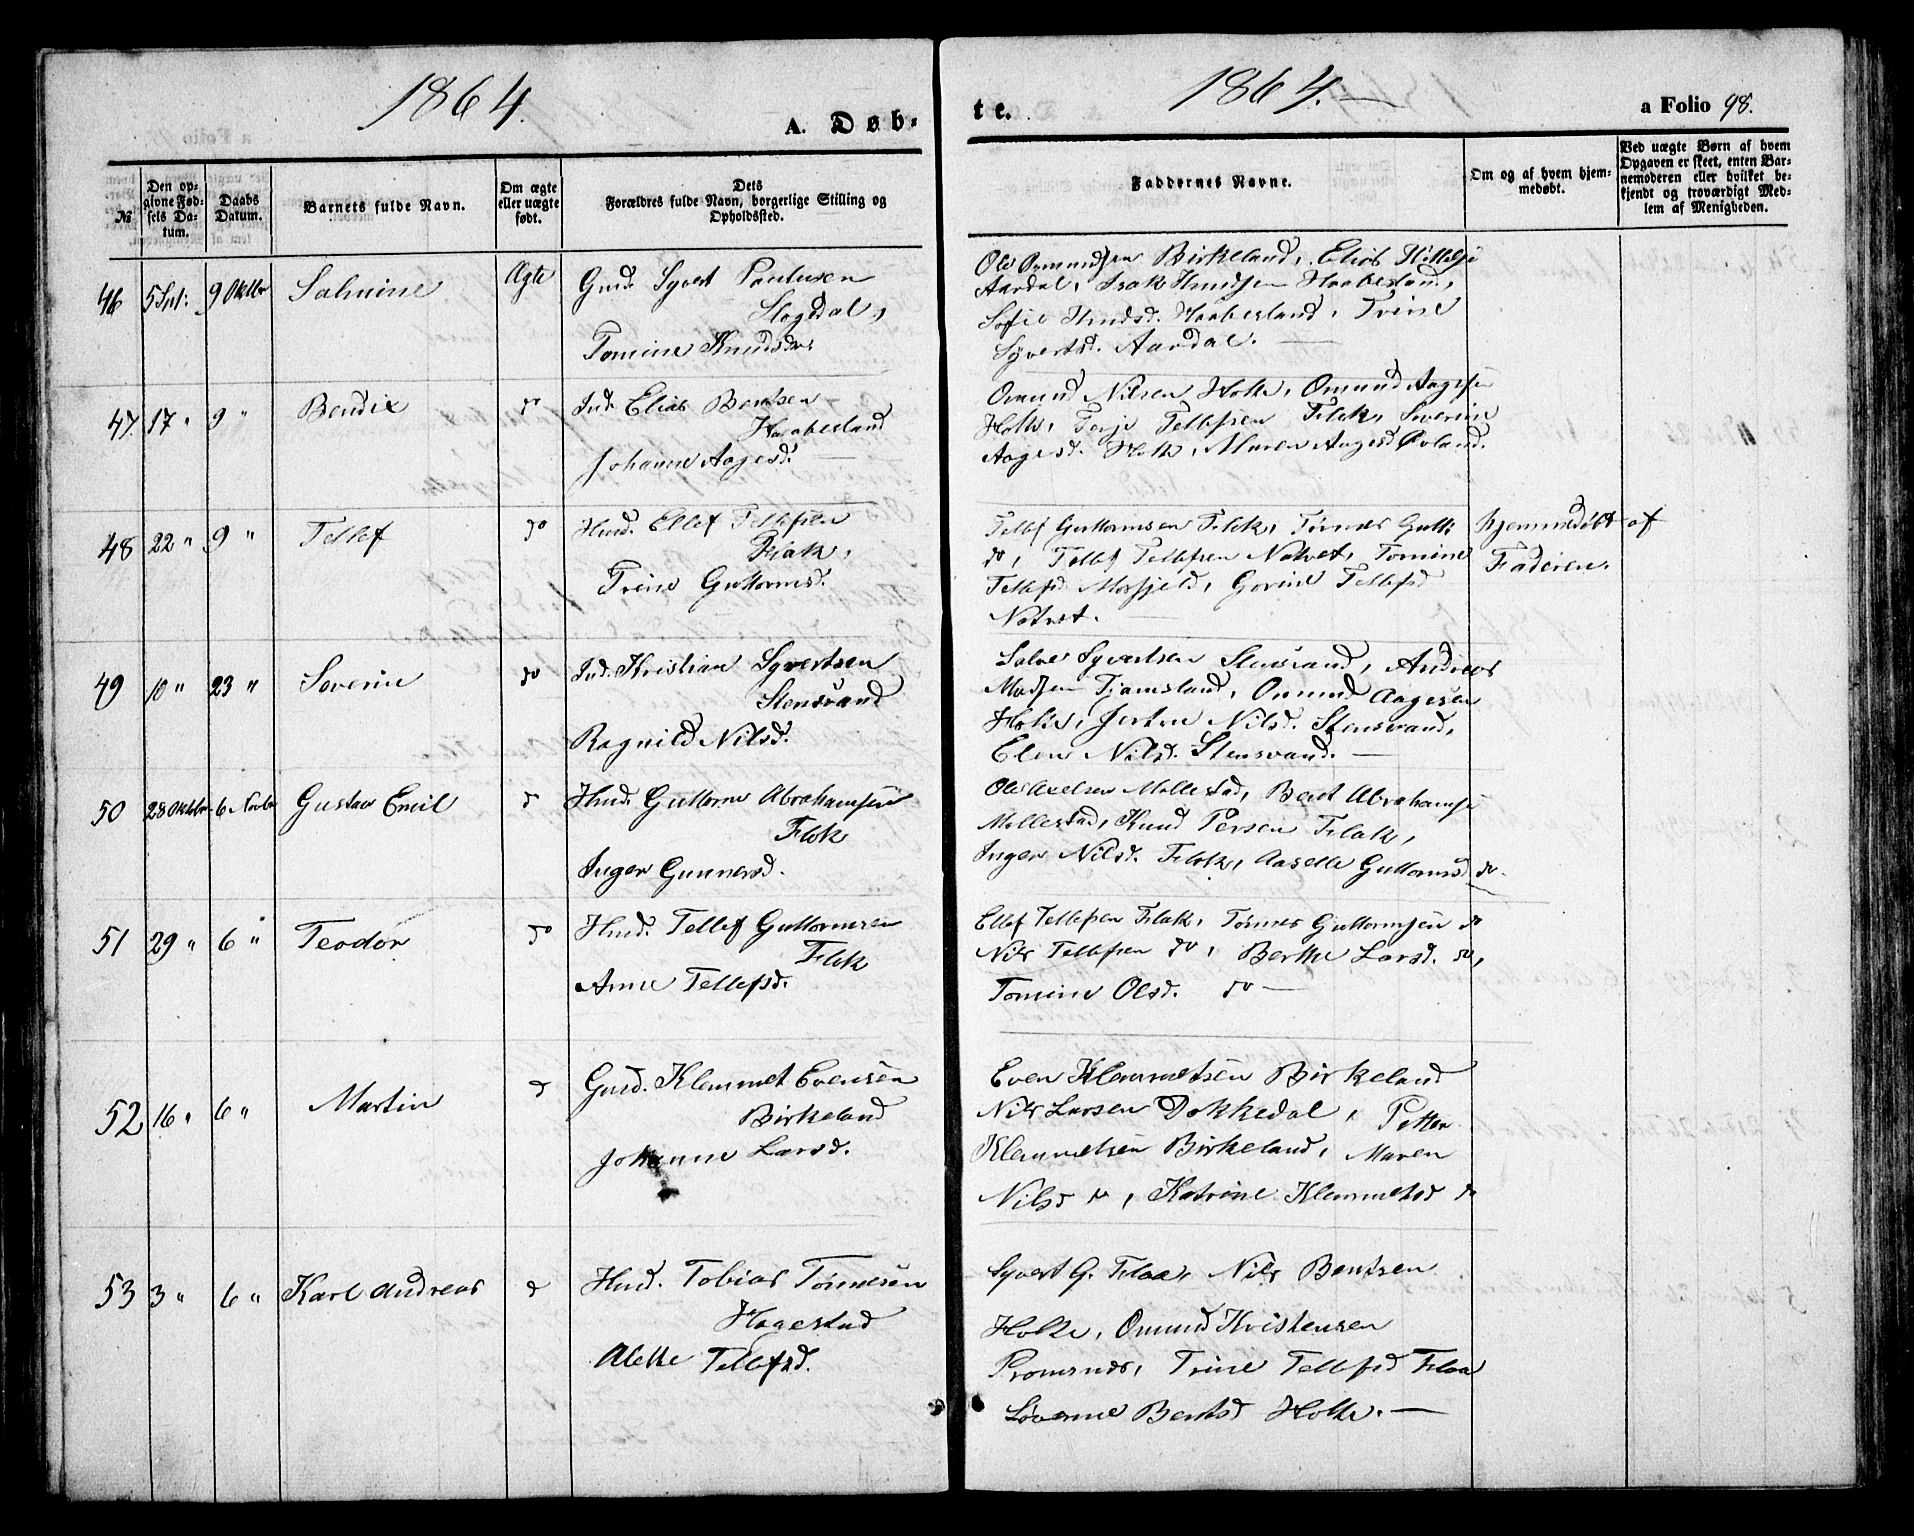 1864.
A. Døb-
te.
1864.
a Folio 98.
№
Den op-
givne Fød-
sels Da-
tum.
Daabs
Datum.
Barnets fulde Navn.
Om ægte
eller uægte
født.
Dets
Forældres fulde Navn, borgerlige Stilling og
Opholdssted.
Faddernes Navne.
Om og af hvem hjem-
medøbt.
Ved uægte Børn af hvem
Opgaven er skeet, enten Bar-
nemoderen eller hvilket be-
kjendt og troværdigt Med-
lem af Menigheden.
46 5 Spt: 9 Oktbr Salmine Ægte Gmd. Syvert Paulusen
Slogedal,
Tomine Knudsdtr
Ole Omundsen Birkeland, Elias Kittels:
Aardal, Isak Knudsen Haabesland,
Sofie Knudsd. Haabesland, Trine
Syvertsd. Aardal.
47. 17 " 9 " Bendix do Ind. Elias Bentsen
Haabesland
Johanne Aagesd.
Omund Nilsen Holte, Omund Aagesen
Holte, Terje Tellefsen Flak, Severine
Aagesd. Holte, Maren Aagesd Øvland.
48 22 " 9 " Tellef do Husd. Ellef Tellefsen
Flak,
Trine Guttormsd.
Tellef Guttormsen Flak, Tørnes Gutt:
do, Tellef Tellefsen Natvet, Tomine
Tellefsd Mosfjeld, Gorine Tellefsd
Natvet.
hjemmedøbt af
Faderen.
49 10 " 23 " Severin do Ind. Kristian Syvertsen
Stensvand
Ragnild Nilsd.
Salve Syvertsen Stensvand, Andreas
Madsen Tjomsland, Omund Aagesen
Holte, Nilsd. Stensvand,
Elen Nilsd. Stensvand.
50 28 Oktbr 6 Novbr Gustav Emil do Husd. Guttorm Abrahamsen
Flak
Inger Gunnersd.
Ole Axelsen Mollestad, Bent Abrahams:
Mollestad, Knud Persen Flak,
Inger Nilsd. Flak, Aaselle Guttormsd do.
51 29 " 6 " Teodor do Husd. Tellef Guttormsen
Flak
Anne Tellefsd.
Ellef Tellefsen Flak, Tørnes Guttormsen do
Nils Tellefsen do, Berthe Larsd. do,
Tomine Olsd. do
52 16 " 6 " Martin do Gmd. Klemmet Evensen
Birkeland
Johanne Larsd.
Even Klemmetsen Birkeland
Nils Larsen Dokkedal, Petter
Klemmetsen Birkeland, Maren
Nilsd do, Katrine Klemmetsd do
53 3 " 6 " Karl Andreas do Husd. Tobias Tørnesen
Hagestad
Alette Tellefsd.
Syvert G. Flaa, Nils Bentsen
Holte, Omund Kristensen
Tronsnes, Trine Tellefsd Flaa
Bentsd Holte.